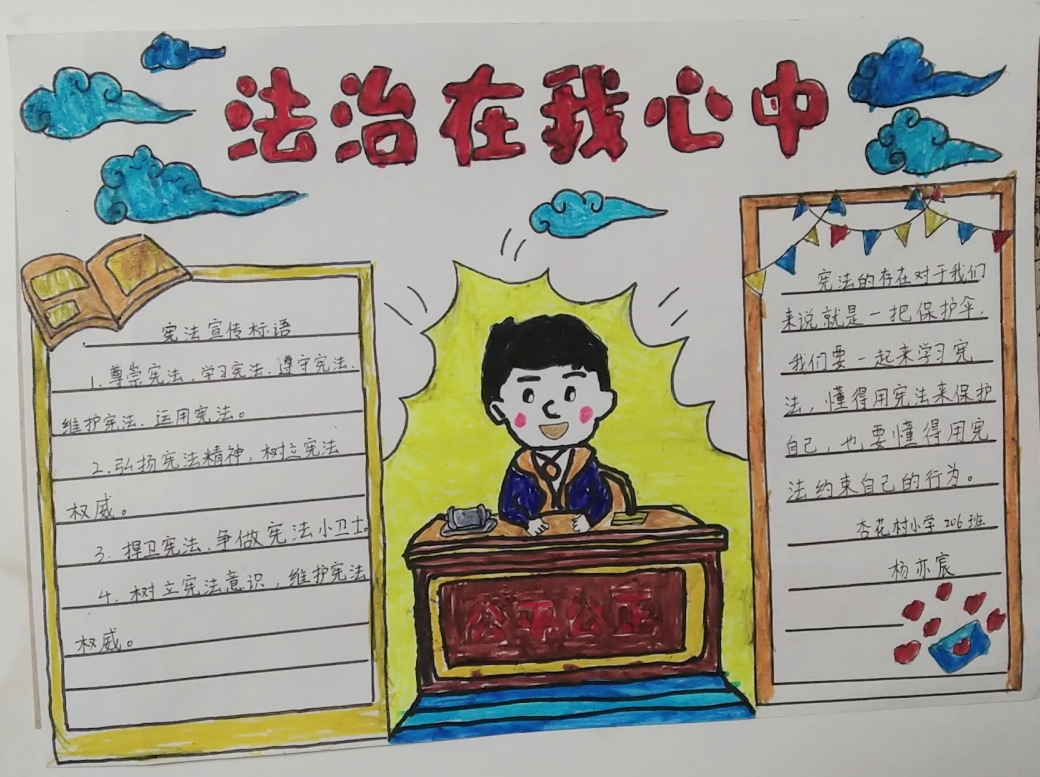 法治在我心中
宪法宣传标语
1.尊崇宪法、学习宪法、遵守宪法、
维护宪法、运用宪法。
2.弘扬宪法精神，树立宪法
权威。
3.捍卫宪法、争做宪法小卫士。
4.树立宪法意识，维护宪法
权威。
公平公正
宪法的存在对于我们
来说就是一把保护伞，
我们要一起来学习宪
法，懂得用宪法来保护
自己，也要懂得用宪
法约束自己的行为。
杏花村小学206班
杨亦宸